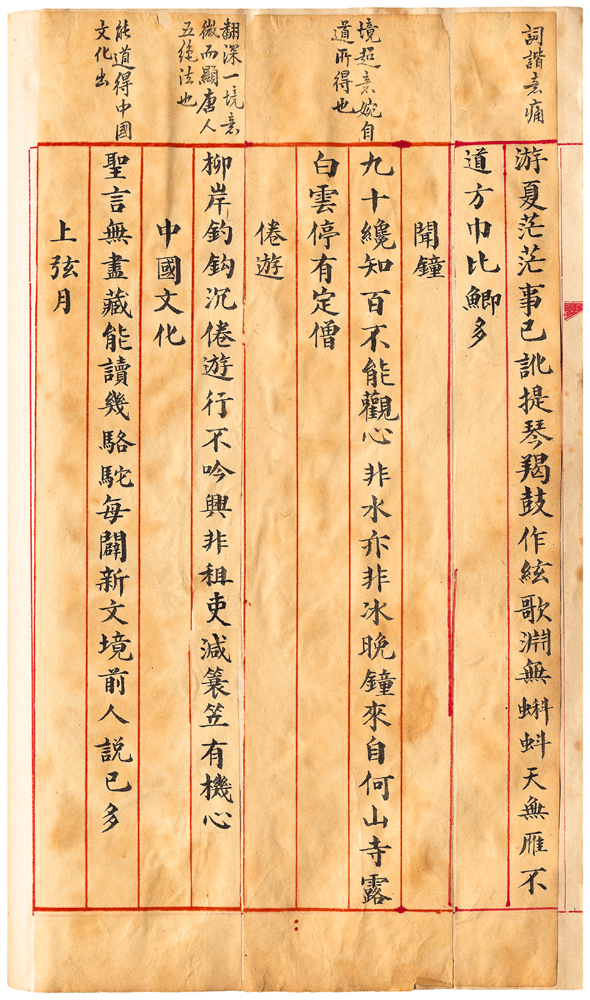 詞諧意痛
境超意婉自
道所得也
翻深一境意
微而顯唐人
五絶法也
能道得中國
文化出
游夏茫茫事已訛提琴羯鼓作絃歌淵無蝌蚪天無雁不
道方巾比鯽多
聞鐘
九十纔知百不能觀心非水亦非冰晚鐘來自何山寺露
白雲停有定僧
倦遊
柳岸釣鈎沉倦遊行不吟興非租吏減蓑笠有機心
中國文化
聖言無盡藏能讀幾駱駝每闢新文境前人説已多
上弦月